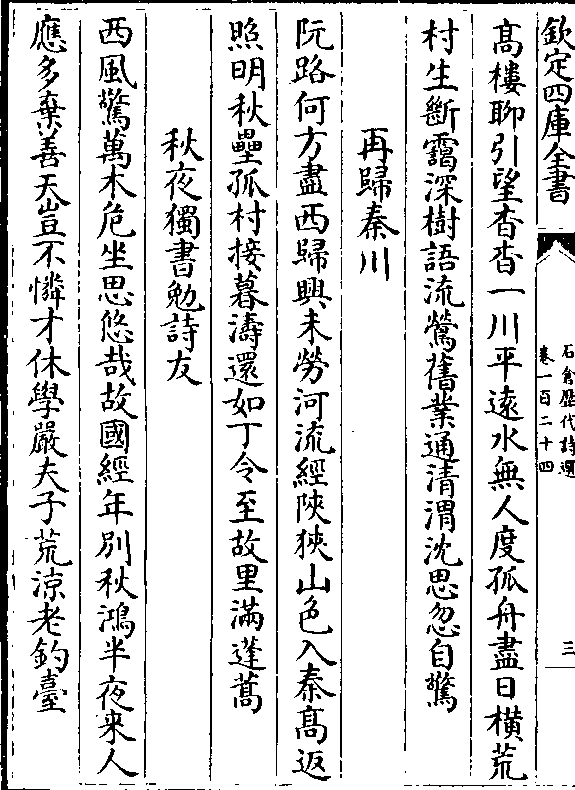 欽定四庫全書
石倉歷代詩選
卷一百二十四
三
髙樓聊引望杳杳一川平逺水無人度孤舟盡日横荒
村生斷靄深樹語流鶯舊業通清渭沈思忽自驚
再歸秦川
阮路何方盡西歸興未勞河流經陜狹山色入秦髙返
照明秋壘孤村接暮濤還如丁令至故里滿蓬蒿
秋夜獨書勉詩友
西風驚萬木危坐思悠哉故國經年別秋鴻半夜来人
應多棄善天豈不憐才休學嚴夫子荒涼老釣臺